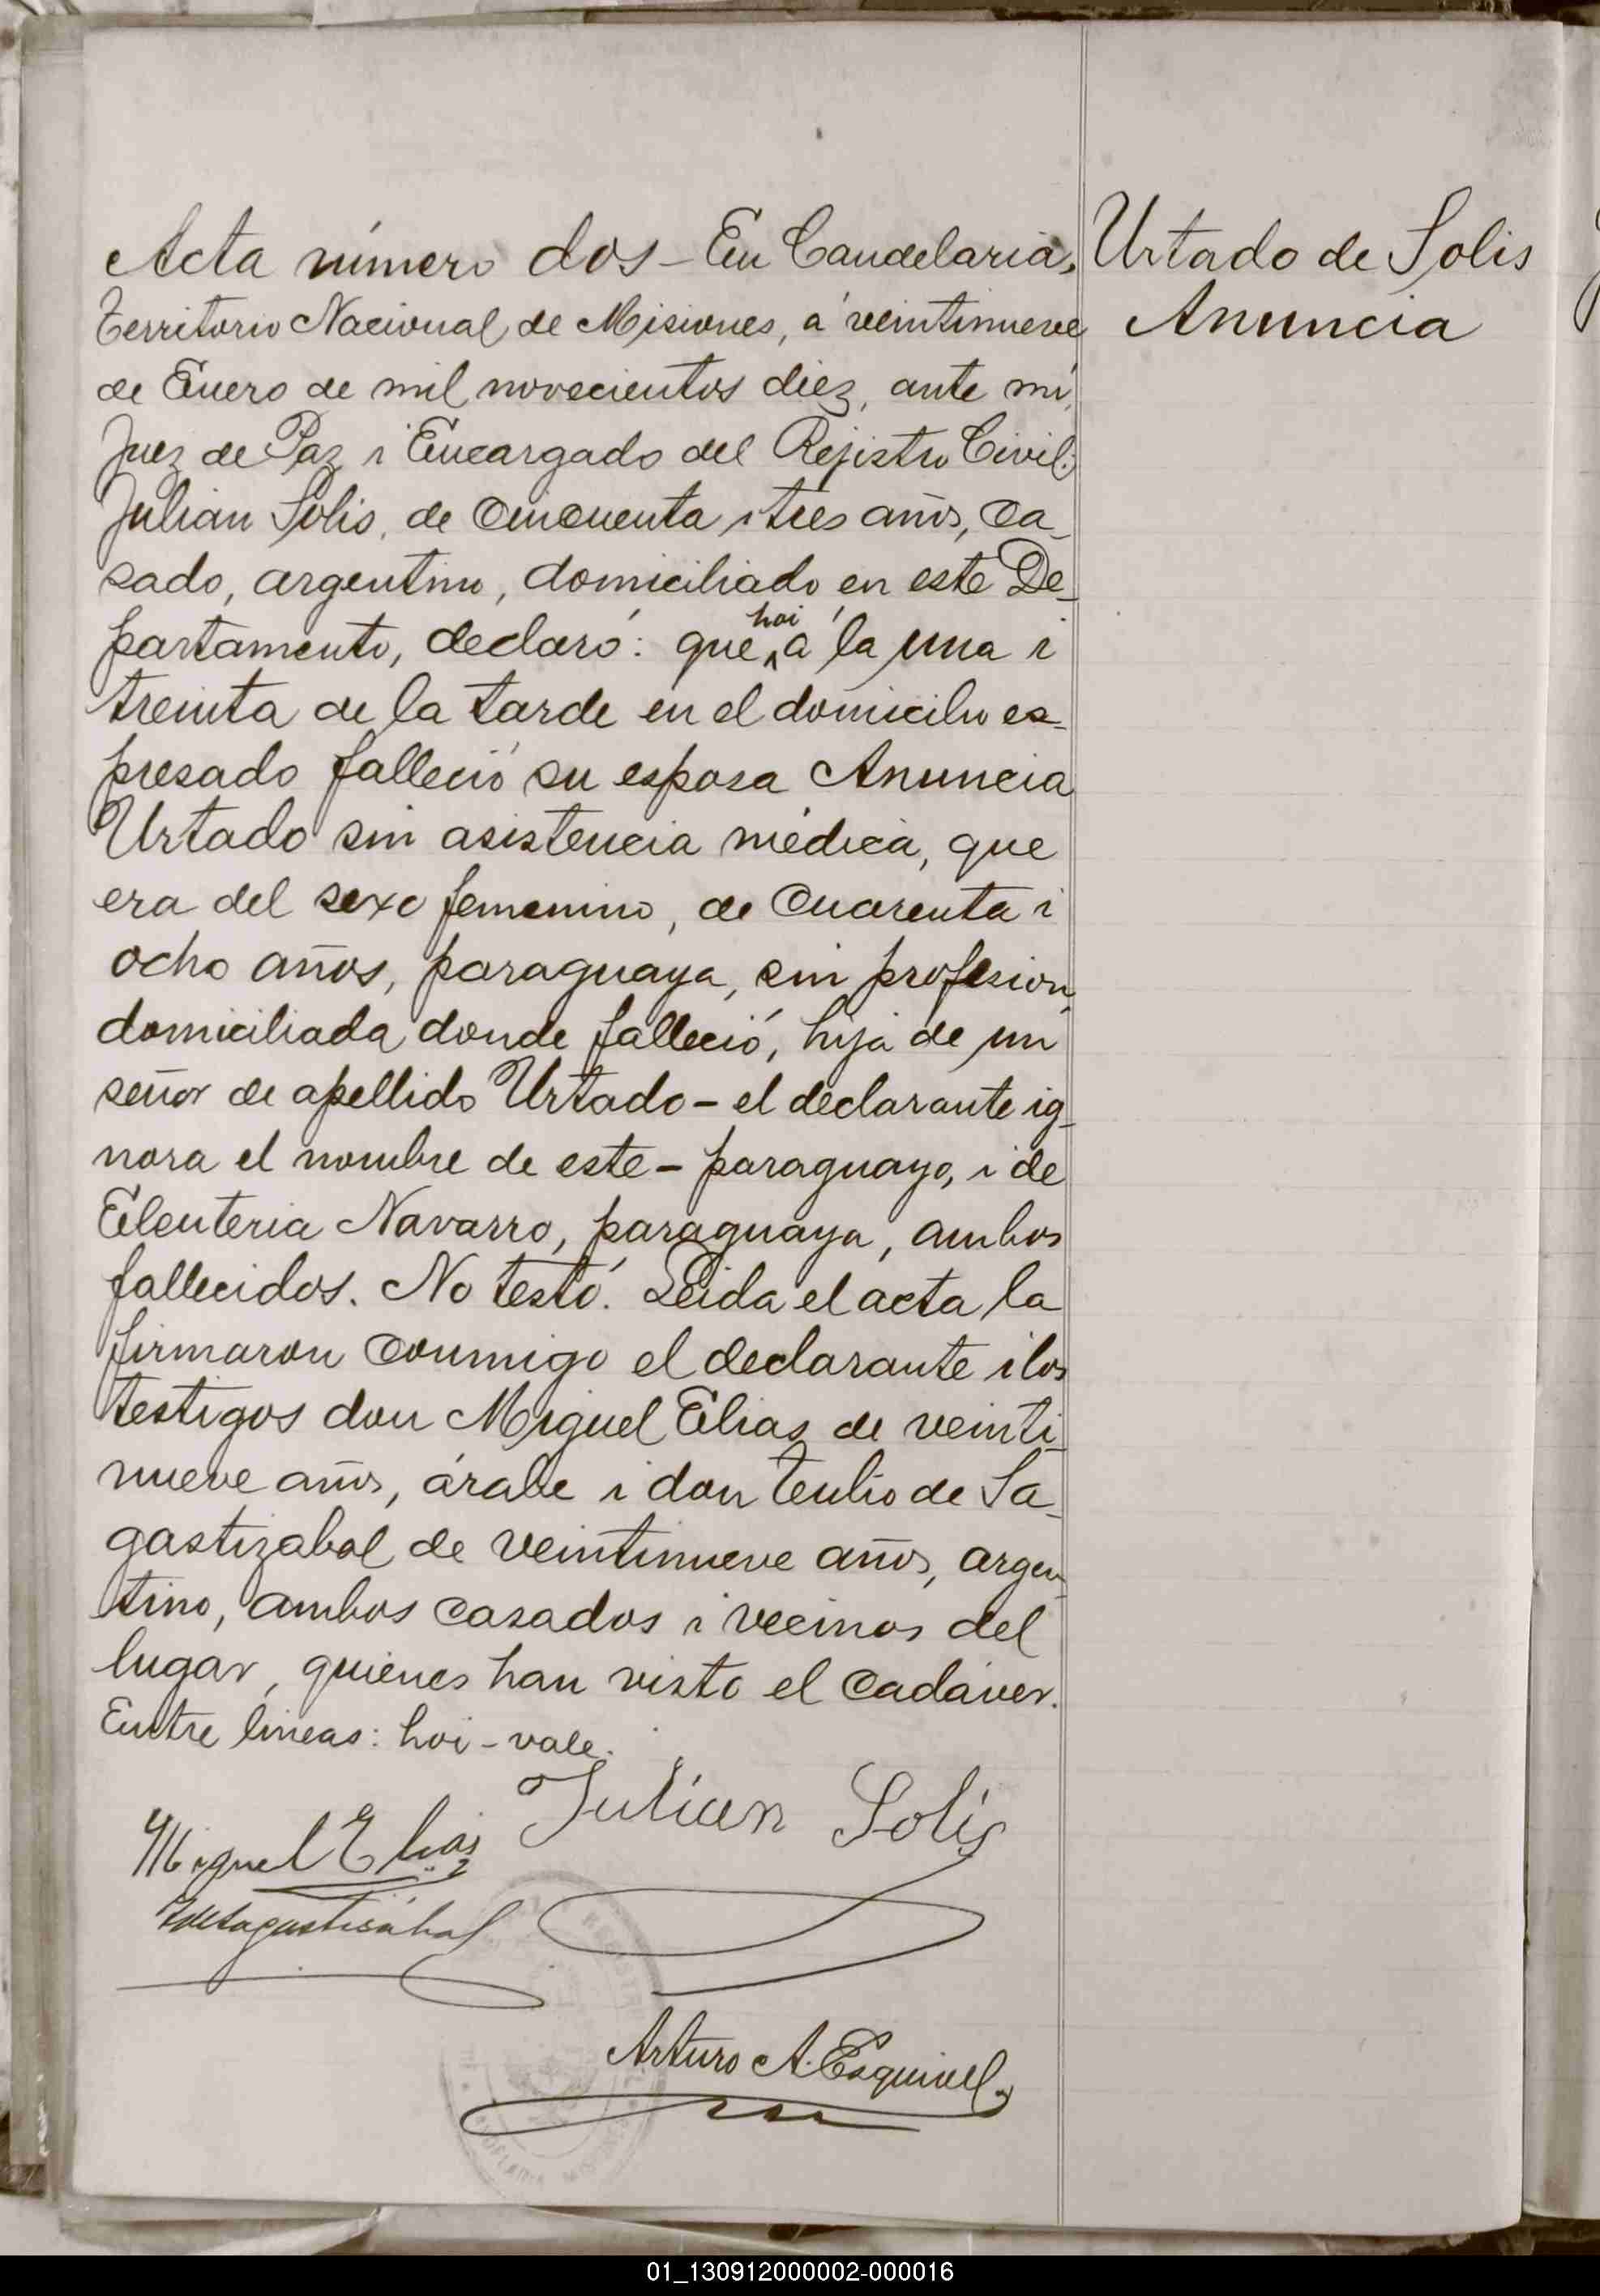 Acta número dos - En Candelaria,
Territorio Nacional de Misiones, á veintinueve
de Enero de mil novecientos diez, ante mí,
Juez de Paz i Encargado del Rejistro Civil:
Julian Solis, de cincuenta i tres años, ca-
sado, argentino, domiciliado en este De-
partamento, declaró: que hoi á la una i
treinta de la tarde en el domicilio es-
presado falleció su esposa Anuncia
Urtado sin asistencia médica, que
era del sexo femenino, de cuarenta i
ocho años, paraguaya, sin profesion,
domiciliada donde falleció, hija de un
señor de apellido Urtado - el declarante ig-
nora el nombre de este - paraguayo, i de
Eleuteria Navarro, paraguaya, ambos
fallecidos. No testó. Leida el acta la
firmaron conmigo el declarante i los
testigos don Miguel Elias de veinti-
nueve años, árabe i don Tulio de Sa-
gastizabal de veintinueve años, argen-
tino, ambos casados i vecinos del
lugar, quienes han visto el cadáver.
Entre lineas: hoi - vale.
Urtado de Solis
Anuncia
Julian Solis
Miguel Elias
TdeSagastizábal
Arturo A. Esquivel
01_130912000002-000016